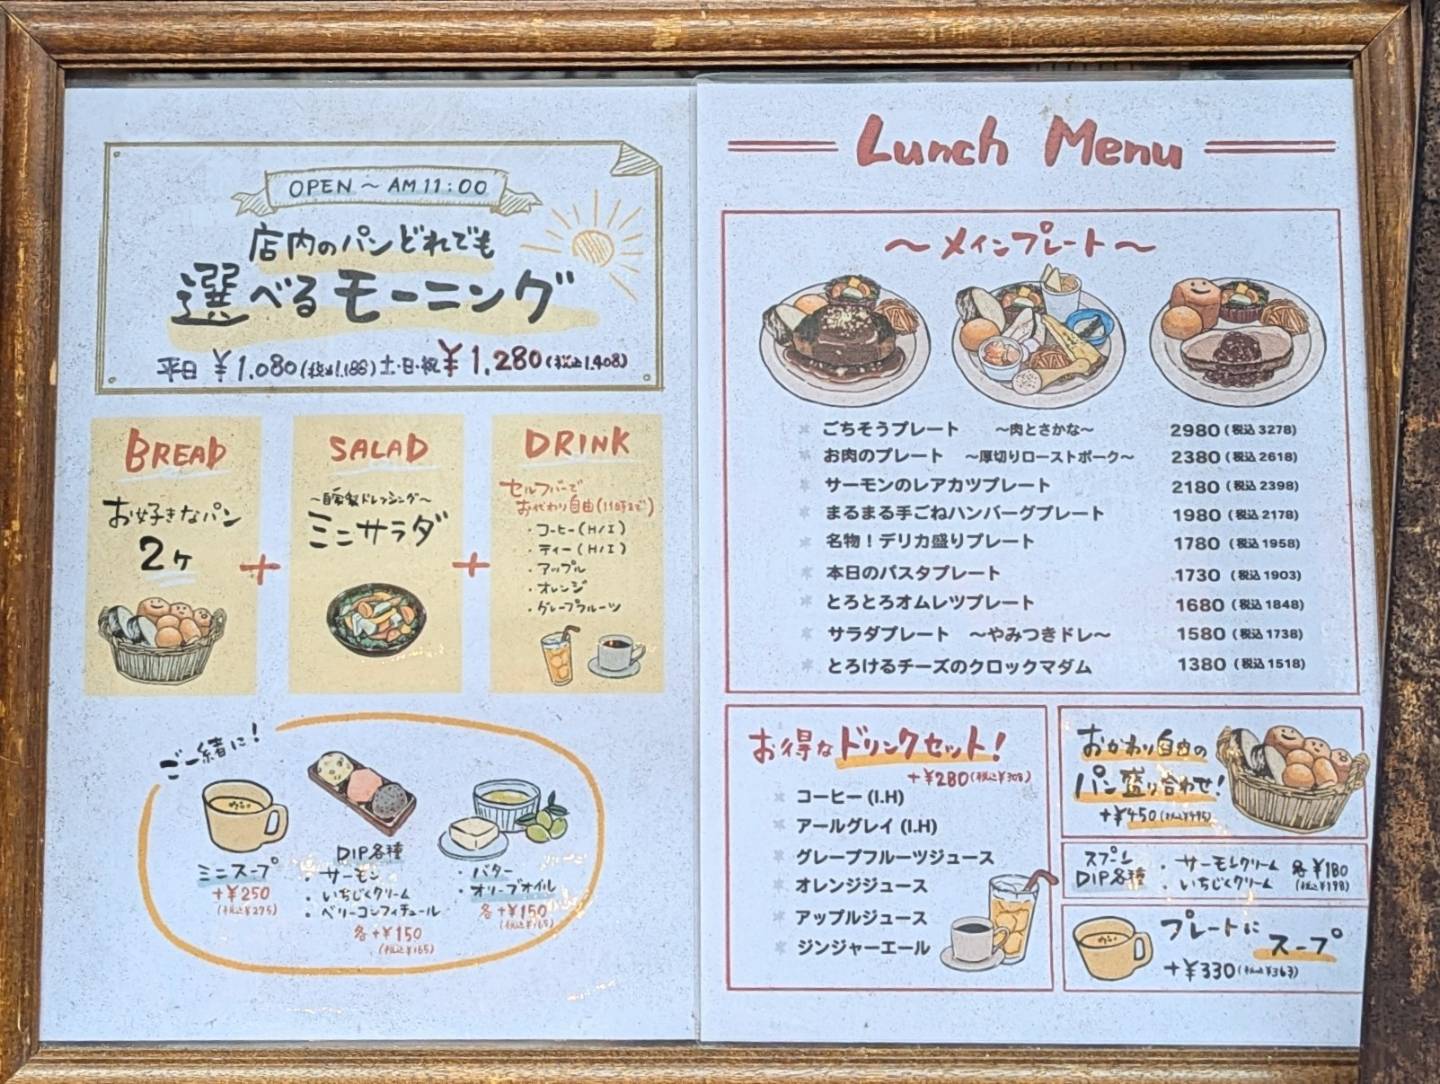 OPEN ~ AM11:00
店内のパンどれでも
選べるモーニング
平日 ¥1,080(税込1,188) 土・日・祝 ¥1,280(税込1,408)
BREAD
お好きなパン
2ヶ
+
SALAD
~自家製ドレッシング~
ミニサラダ
+
DRINK
セルフバーで
おかわり自由(11時まで)
・コーヒー(H/I)
・ティー(H/I)
・アップル
・オレンジ
・グレープフルーツ
ご一緒に!
ミニスープ
+¥250
(税込¥275)
DIP各種
・サーモン
・いちじくクリーム
・ベリーコンフィチュール
各+¥150
(税込¥165)
・バター
・オリーブオイル
各+¥150
(税込¥165)
Lunch Menu
~メインプレート~
ごちそうプレート ~肉とさかな~ 2980(税込3278)
お肉のプレート ~厚切りローストポーク~ 2380(税込2618)
サーモンのレアカツプレート 2180(税込2398)
まるまる手ごねハンバーグプレート 1980(税込2178)
名物!デリカ盛りプレート 1780(税込1958)
本日のパスタプレート 1730(税込1903)
とろとろオムレツプレート 1680(税込1848)
サラダプレート ~やみつきドレ~ 1580(税込1738)
とろけるチーズのクロックマダム 1380(税込1518)
お得なドリンクセット!
+¥280(税込¥308)
コーヒー(I.H)
アールグレイ(I.H)
グレープフルーツジュース
オレンジジュース
アップルジュース
ジンジャーエール
おかわり自由の
パン盛り合わせ!
+¥450(税込¥495)
スプーン
DIP各種
・サーモンクリーム
・いちじくクリーム
各¥180
(税込¥198)
プレートに
スープ
+¥330(税込¥363)